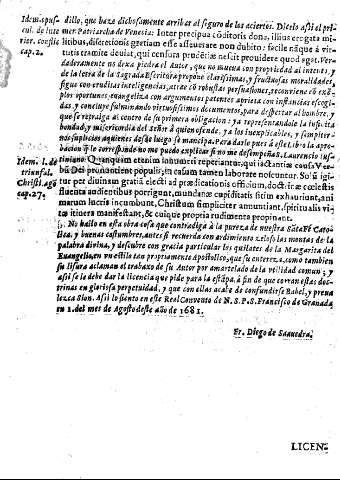 Idem opusc. dillo, que haze dichosamente arribar al seguro de los aciertos. Dicelo assi el pri-
cul. de inte mer Patriarcha de Venesia: Inter precipua cõditoris dona, illius erogata mi-
rior. conflic litibus, discretionis gratiam esse asseuerare non dubito: facile nãque à vir-
cap. 2. tutis tramite deuiat, qui censura prudẽtiæ nescit prouidere quod agat. Ver-
daderamente no dexa piedra el Autor, que no mueua con propriedad al intento, y
de la letra de la Sagrada Escritura propone clarissimas, y fructuosas moralidades,
sigue con eruditas inteligencias, atrae cõ robustas persuasiones, reconuiene cõ exẽ-
plos oportunos, euangeliza con argumentos patentes, aprieta con instancias escogi-
das, y concluye fulminando virtuosissimos documentos, para despertar al hombre, y
que se retraiga al centro de su primera obligacion: ya representandole la infinita
bondad, y misericordia del Señor à quien ofende, ya los inexplicables, y sempiter-
nos suplicios à quienes desde luego se mancipa. Para darle pues à este libro la apro-
Idem. l. de bacion que le corresponde no me puedo explicar si no me desempeña S. Laurencio Jus-
triumfal. tiniano: Quamquam etenim innumeri reperiantur, qui iactantiæ causa Ver-
Christi. ago bũ Dei pronuntient populis; in casum tamen laborate noscuntur. Soli igi-
cap. 27. tur per diuinam gratiã electi ad prædicationis officium, doctrinæ cœlestis
fluenta audientibus porrigunt, mundanæ cupiditatis sitim exhauriunt, ani-
marum lucris incumbunt, Christum simpliciter annuntiant, spiritualis vi-
tæ itinera manifestant, & cuique propria rudimenta propinant.
No hallo en esta obra cosa que contradiga à la pureza de nuestra Sãta Fè Cato-
lica, y buenas costumbres, antes si se recuerda con ardimiento zeloso las montas de la
palabra diuina, y descubre con gracia particular los quilates de la Margarita del
Euangelio, en vn estilo tan propriamente Apostolico, que su entereza, como tambien
su lisura aclaman el trabaxo de su Autor por amartelado de la vtilidad comun; y
assi se le debe dar la licencia que pide para la estãpa, à fin de que corran estas doc-
trinas en gloriosa perpetuidad, y que con ellas acabe de confundirse Babel, y preua
lezca Sion. Assi lo siento en este Real Conuento de N. S. P. S. Francisco de Granada
en 1. del mes de Agosto deste año de 1681.
Fr. Diego de Saauedra.
LICEN-